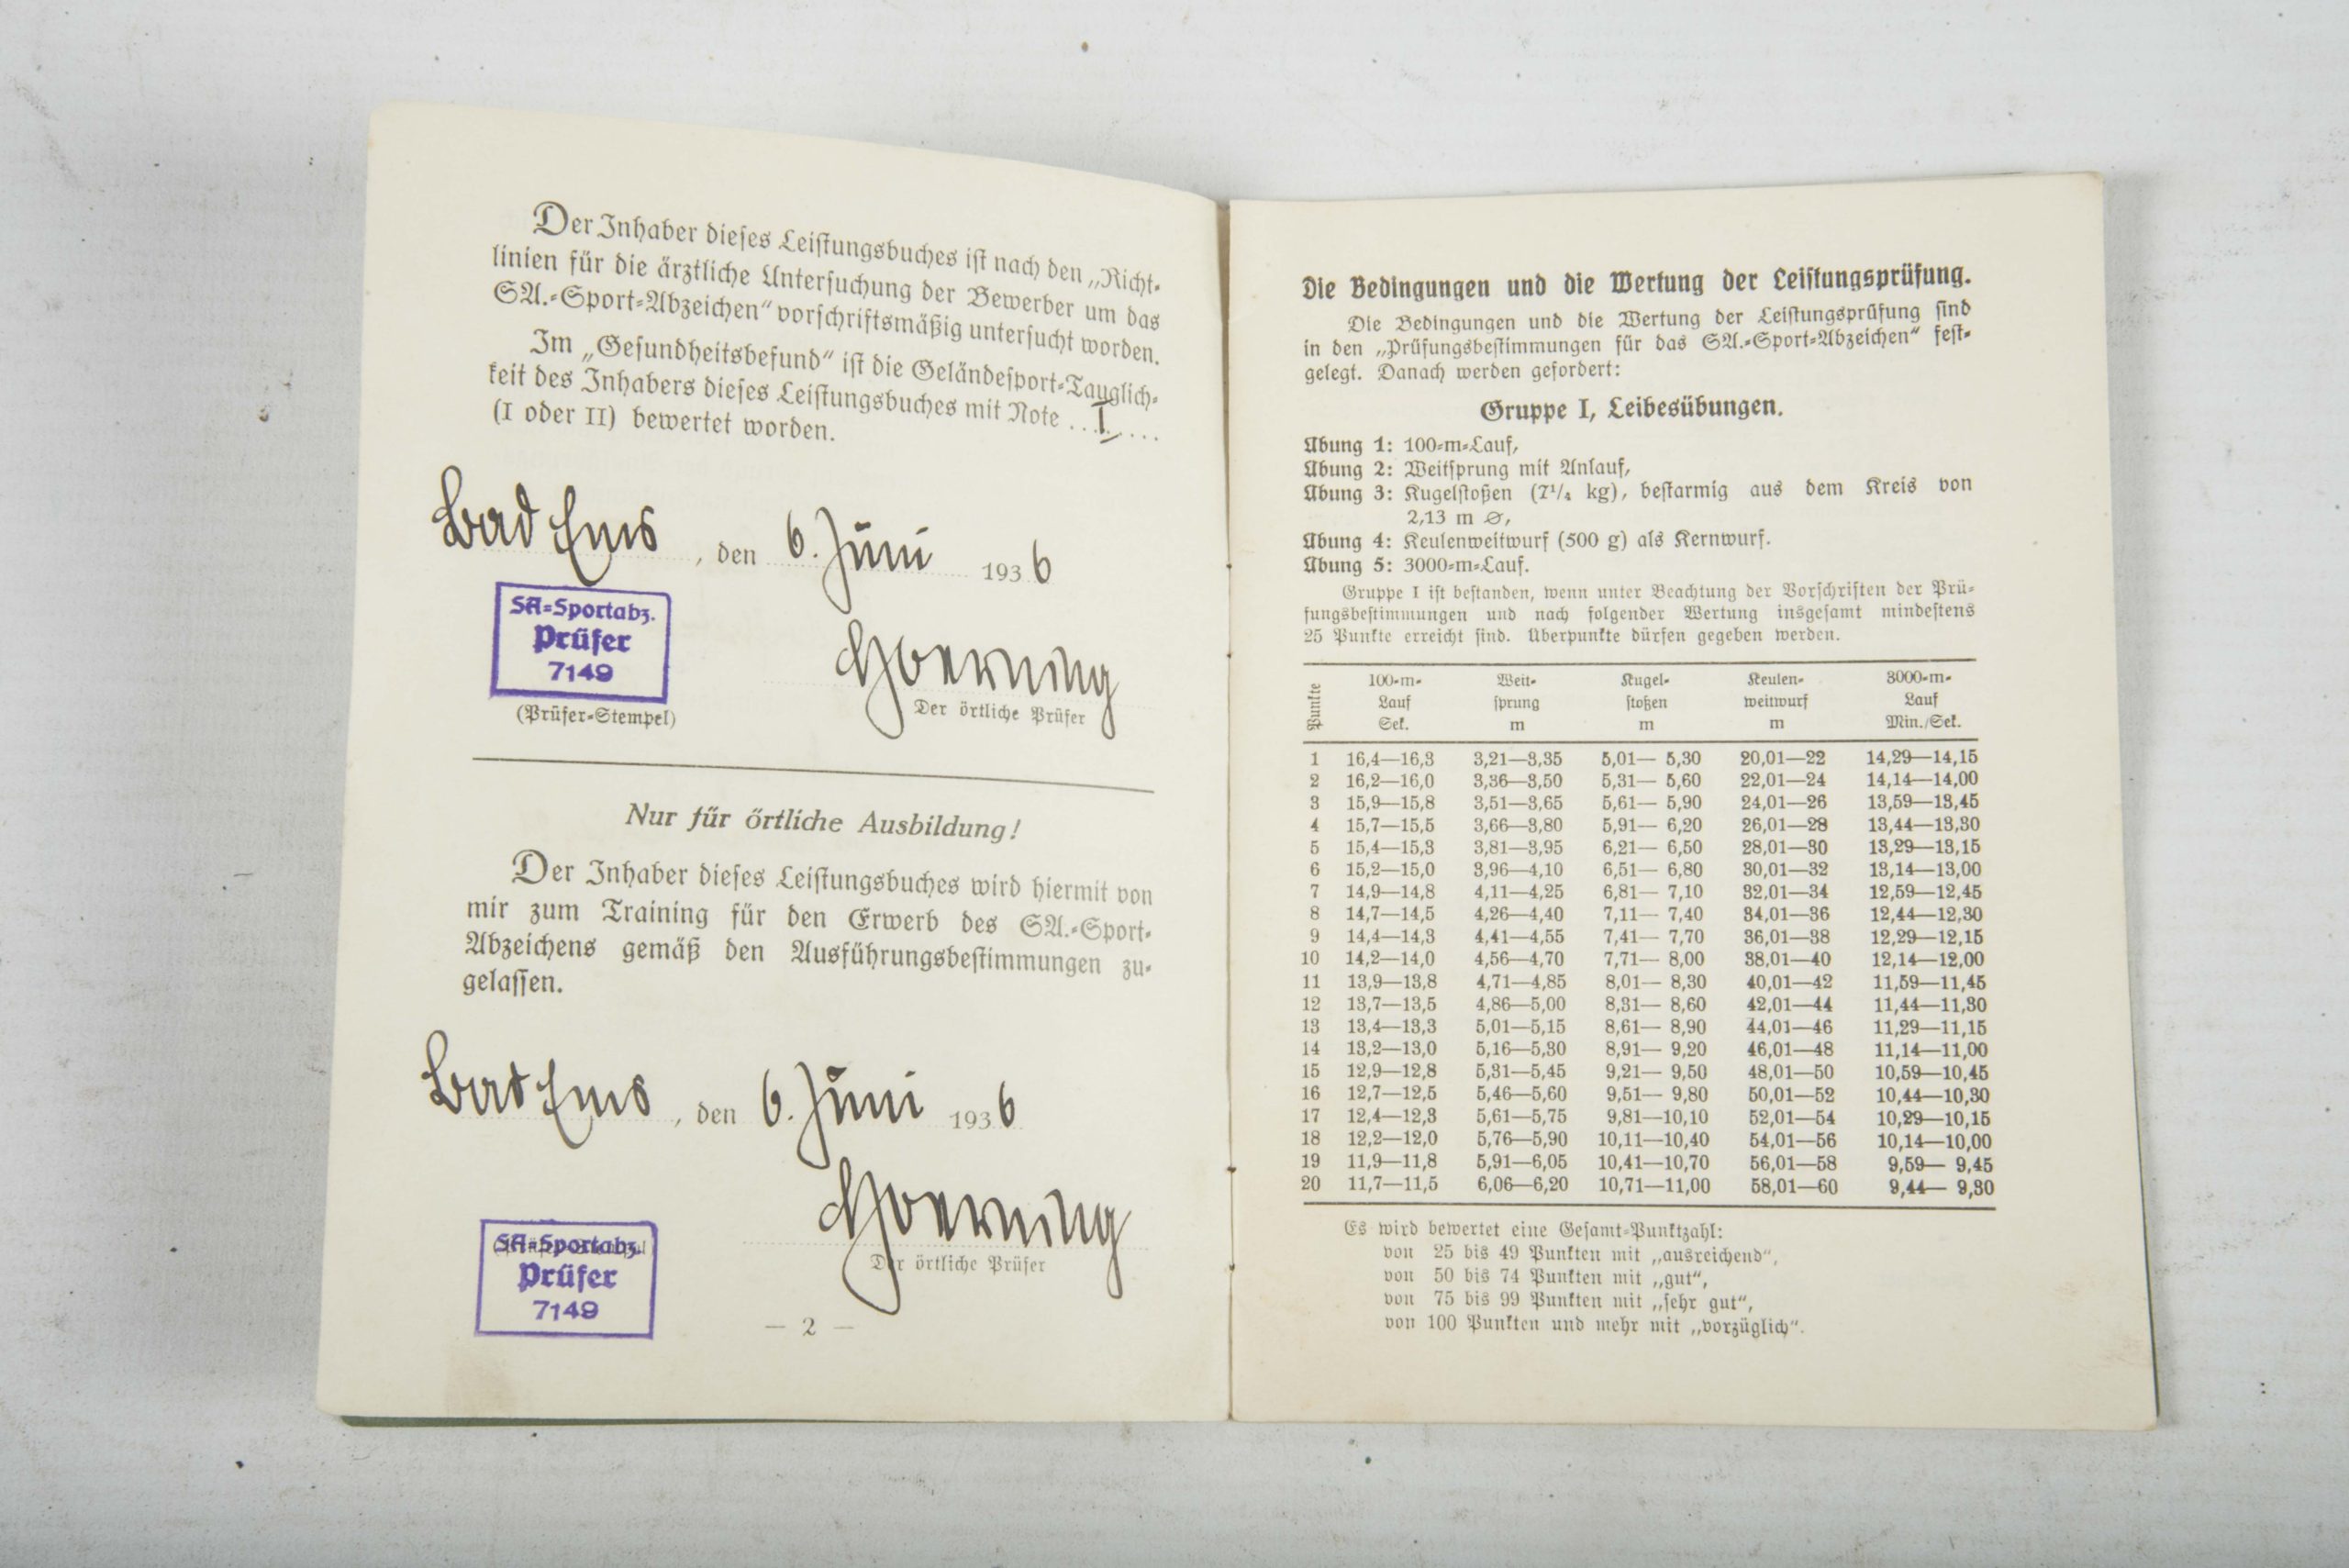 Der Inhaber dieses Leistungsbuches ist nach den „Richt-
linien für die ärztliche Untersuchung der Bewerber um das
SA.-Sport-Abzeichen“ vorschriftsmäßig untersucht worden.
Im „Gesundheitsbefund“ ist die Geländesport-Tauglich-
keit des Inhabers dieses Leistungsbuches mit Note ...I....
(I oder II) bewertet worden.
Bad Ems, den 6. Juni 1936
SA-Sportabz.
Prüfer
7149
(Prüfer-Stempel)
Hoerning
Der örtliche Prüfer
Nur für örtliche Ausbildung!
Der Inhaber dieses Leistungsbuches wird hiermit von
mir zum Training für den Erwerb des SA.-Sport-
Abzeichens gemäß den Ausführungsbestimmungen zu-
gelassen.
Bad Ems, den 6. Juni 1936
Hoerning
Der örtliche Prüfer
SA-Sportabz.
Prüfer
7149
— 2 —
Die Bedingungen und die Wertung der Leistungsprüfung.
Die Bedingungen und die Wertung der Leistungsprüfung sind
in den „Prüfungsbestimmungen für das SA.-Sport-Abzeichen“ fest-
gelegt. Danach werden gefordert:
Gruppe I, Leibesübungen.
Übung 1: 100-m-Lauf,
Übung 2: Weitsprung mit Anlauf,
Übung 3: Kugelstoßen (7¼ kg), bestarmig aus dem Kreis von
2,13 m ⌀,
Übung 4: Keulenweitwurf (500 g) als Kernwurf.
Übung 5: 3000-m-Lauf.
Gruppe I ist bestanden, wenn unter Beachtung der Vorschriften der Prü-
fungsbestimmungen und nach folgender Wertung insgesamt mindestens
25 Punkte erreicht sind. Überpunkte dürfen gegeben werden.
Punkte
100-m- Weit- Kugel- Keulen- 3000-m-
Lauf sprung stoßen weitwurf Lauf
Sek. m m m Min./Sek.
1 16,4—16,3 3,21—3,35 5,01— 5,30 20,01—22 14,29—14,15
2 16,2—16,0 3,36—3,50 5,31— 5,60 22,01—24 14,14—14,00
3 15,9—15,8 3,51—3,65 5,61— 5,90 24,01—26 13,59—13,45
4 15,7—15,5 3,66—3,80 5,91— 6,20 26,01—28 13,44—13,30
5 15,4—15,3 3,81—3,95 6,21— 6,50 28,01—30 13,29—13,15
6 15,2—15,0 3,96—4,10 6,51— 6,80 30,01—32 13,14—13,00
7 14,9—14,8 4,11—4,25 6,81— 7,10 32,01—34 12,59—12,45
8 14,7—14,5 4,26—4,40 7,11— 7,40 34,01—36 12,44—12,30
9 14,4—14,3 4,41—4,55 7,41— 7,70 36,01—38 12,29—12,15
10 14,2—14,0 4,56—4,70 7,71— 8,00 38,01—40 12,14—12,00
11 13,9—13,8 4,71—4,85 8,01— 8,30 40,01—42 11,59—11,45
12 13,7—13,5 4,86—5,00 8,31— 8,60 42,01—44 11,44—11,30
13 13,4—13,3 5,01—5,15 8,61— 8,90 44,01—46 11,29—11,15
14 13,2—13,0 5,16—5,30 8,91— 9,20 46,01—48 11,14—11,00
15 12,9—12,8 5,31—5,45 9,21— 9,50 48,01—50 10,59—10,45
16 12,7—12,5 5,46—5,60 9,51— 9,80 50,01—52 10,44—10,30
17 12,4—12,3 5,61—5,75 9,81—10,10 52,01—54 10,29—10,15
18 12,2—12,0 5,76—5,90 10,11—10,40 54,01—56 10,14—10,00
19 11,9—11,8 5,91—6,05 10,41—10,70 56,01—58 9,59— 9,45
20 11,7—11,5 6,06—6,20 10,71—11,00 58,01—60 9,44— 9,30
Es wird bewertet eine Gesamt-Punktzahl:
von 25 bis 49 Punkten mit „ausreichend“,
von 50 bis 74 Punkten mit „gut“,
von 75 bis 99 Punkten mit „sehr gut“,
von 100 Punkten und mehr mit „vorzüglich“.